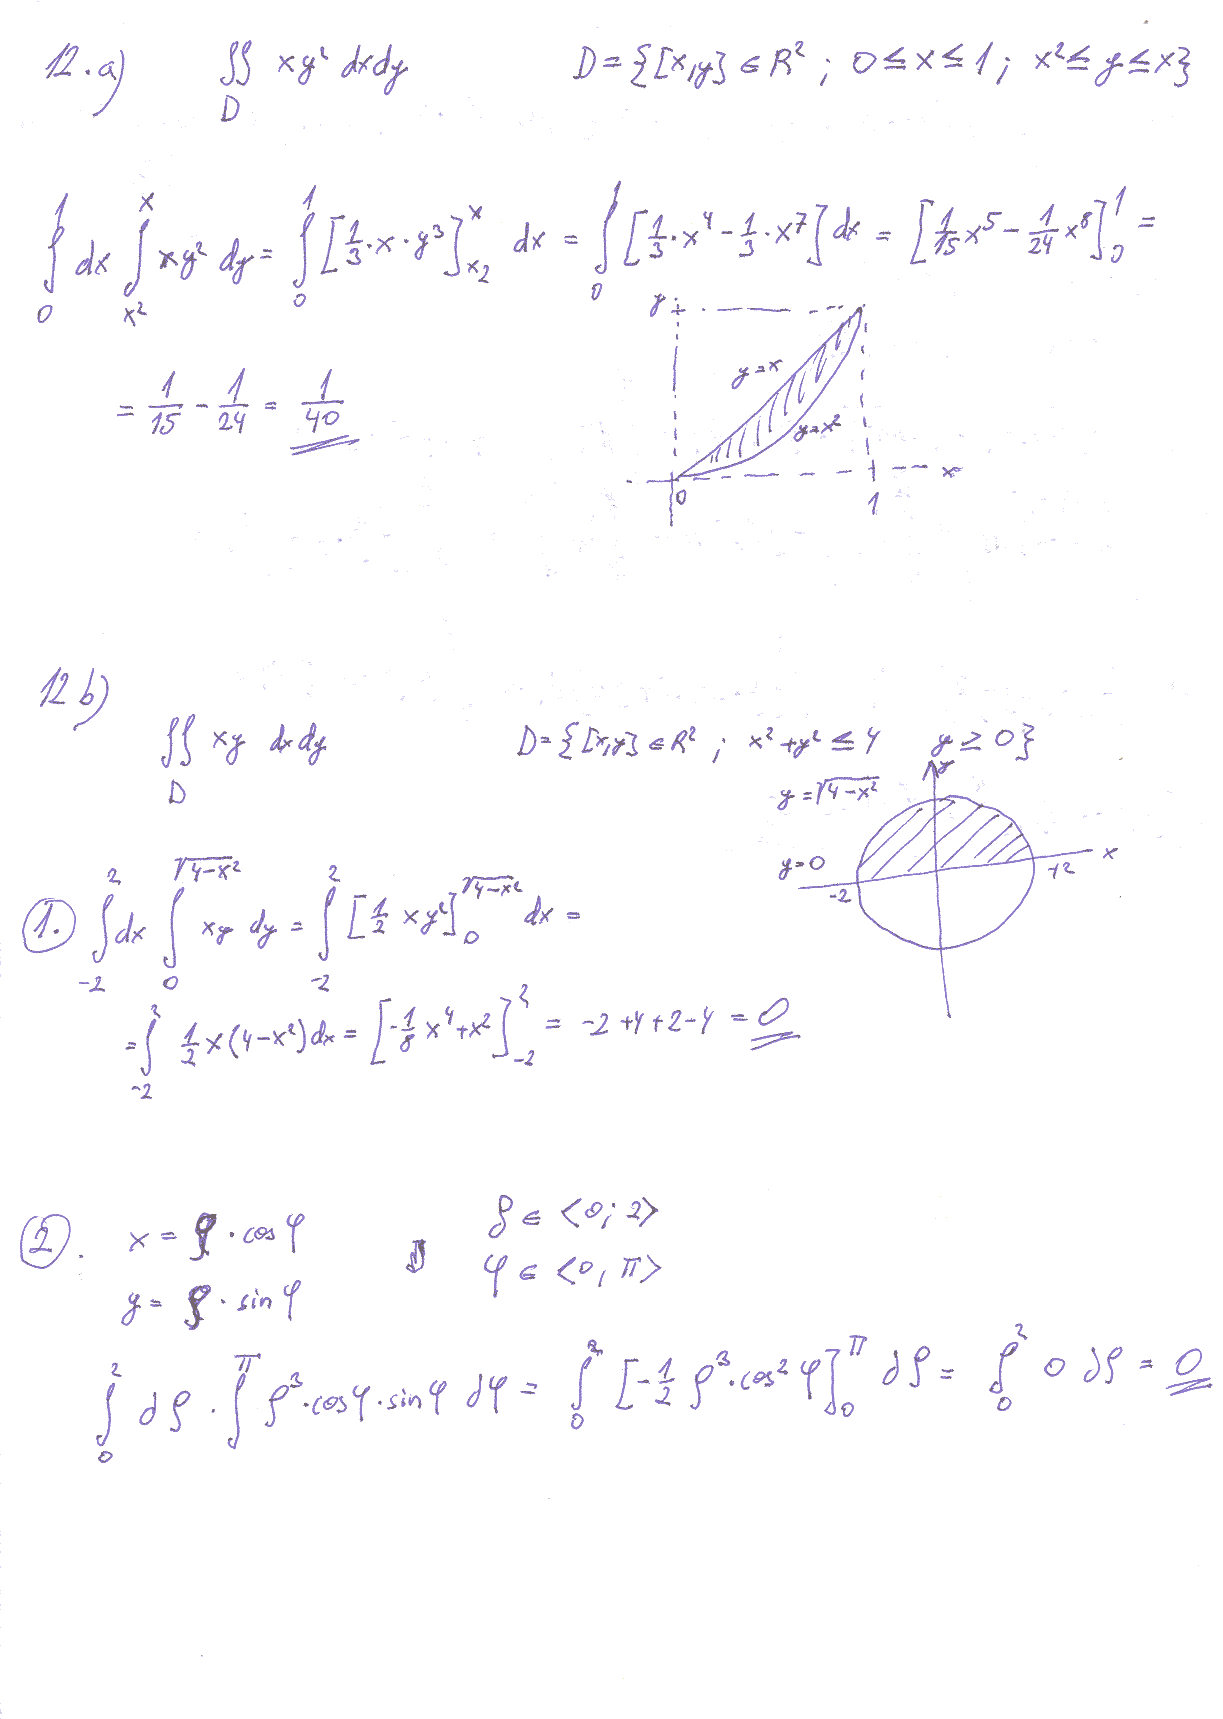 12.a) ∬_D xy² dxdy D={[x,y]∈R² ; 0≤x≤1; x²≤y≤x}
∫_0^1 dx ∫_{x²}^x xy² dy = ∫_0^1 [1/3·x·y³]_{x_2}^x dx = ∫_0^1 [1/3·x⁴-1/3·x⁷] dx = [1/15 x⁵ - 1/24 x⁸]_0^1 =
y
y=x
= 1/15 - 1/24 = 1/40
y=x²
x
0
1
12 b)
∬_D xy dxdy D={[x,y]∈R² ; x²+y²≤4 y≥0}
y
y=√(4-x²)
y=0
x
-2
+2
1. ∫_{-2}^2 dx ∫_0^{√(4-x²)} xy dy = ∫_{-2}^2 [1/2 xy²]_0^{√(4-x²)} dx =
= ∫_{-2}^2 1/2 x(4-x²)dx = [-1/8 x⁴+x²]_{-2}^2 = -2+4+2-4 = 0
2. x = ρ·cos φ ρ∈<0; 2>
y = ρ·sin φ φ∈<0, π>
∫_0^2 dρ · ∫^π ρ³·cosφ·sinφ dφ = ∫_0^2 [-1/2 ρ³·cos²φ]_0^π dρ = ∫_0^2 0 dρ = 0